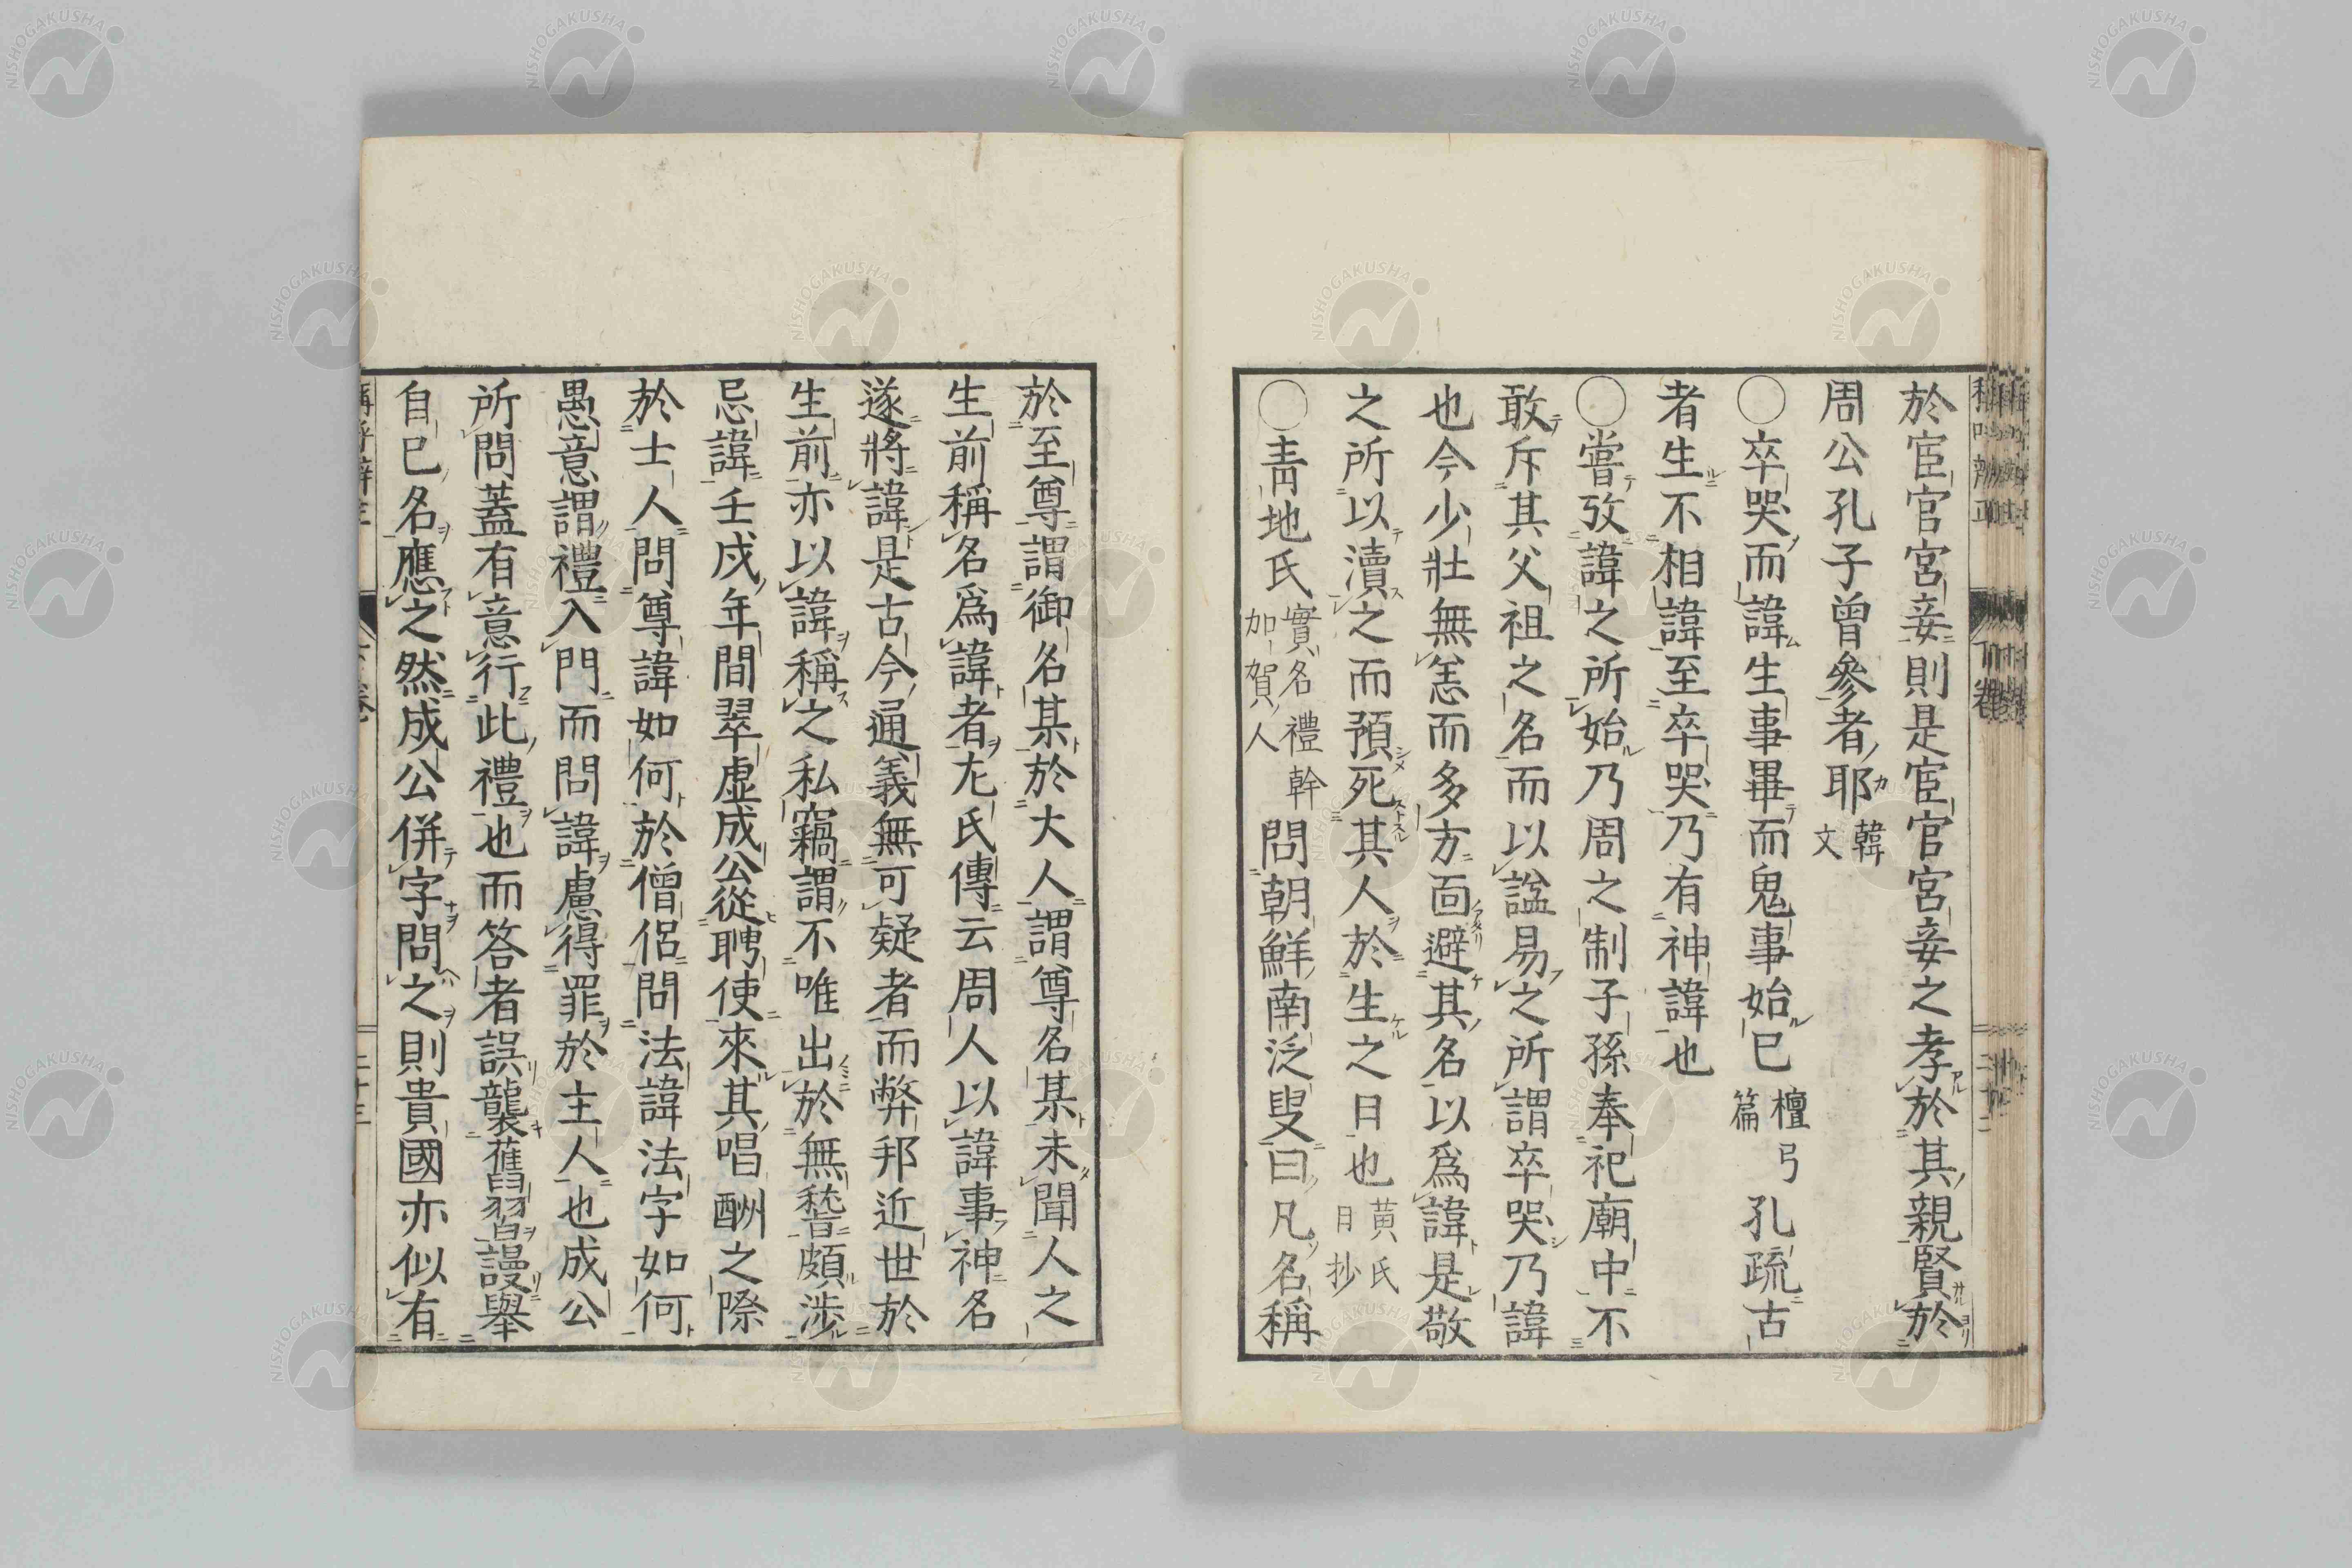 於宦官宮妾則是宦官宮妾之孝於其親賢於
周公孔子曾參者耶韓文
○卒哭而諱生事畢而鬼事始已檀弓篇孔疏古
者生不相諱至卒哭乃有神諱也
○嘗攷諱之所始乃周之制子孫奉祀廟中不
敢斥其父祖之名而以謚易之所謂卒哭乃諱
也今少壯無恙而多方面避其名以爲諱是敬
之所以瀆之而預死其人於生之日也黄氏日抄
○靑地氏實名禮幹加賀人問朝鮮南泛叟曰凡名稱
於至尊謂御名某於大人謂尊名某未聞人之
生前稱名爲諱者左氏傳云周人以諱事神名
遂將諱是古今通義無可疑者而弊邦近世於
生前亦以諱稱之私竊謂不唯出於無稽頗涉
忌諱壬戌年間翠虚成公從聘使來其唱酬之際
於士人問尊諱如何於僧侶問法諱法字如何
愚意謂禮入門而問諱慮得罪於主人也成公
所問蓋有意行此禮也而答者誤襲舊習謾擧
自己名應之然成公併字問之則貴國亦似有